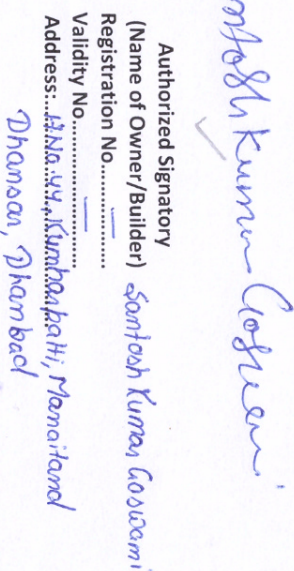 ntosh Kumar Goswami
Authorized Signatory
(Name of Owner/Builder) Santosh Kumar Goswami
Registration No.................
Validity No......................
Address:..H.No.44, Kumharpatti, Manaitand
Dhansar, Dhanbad